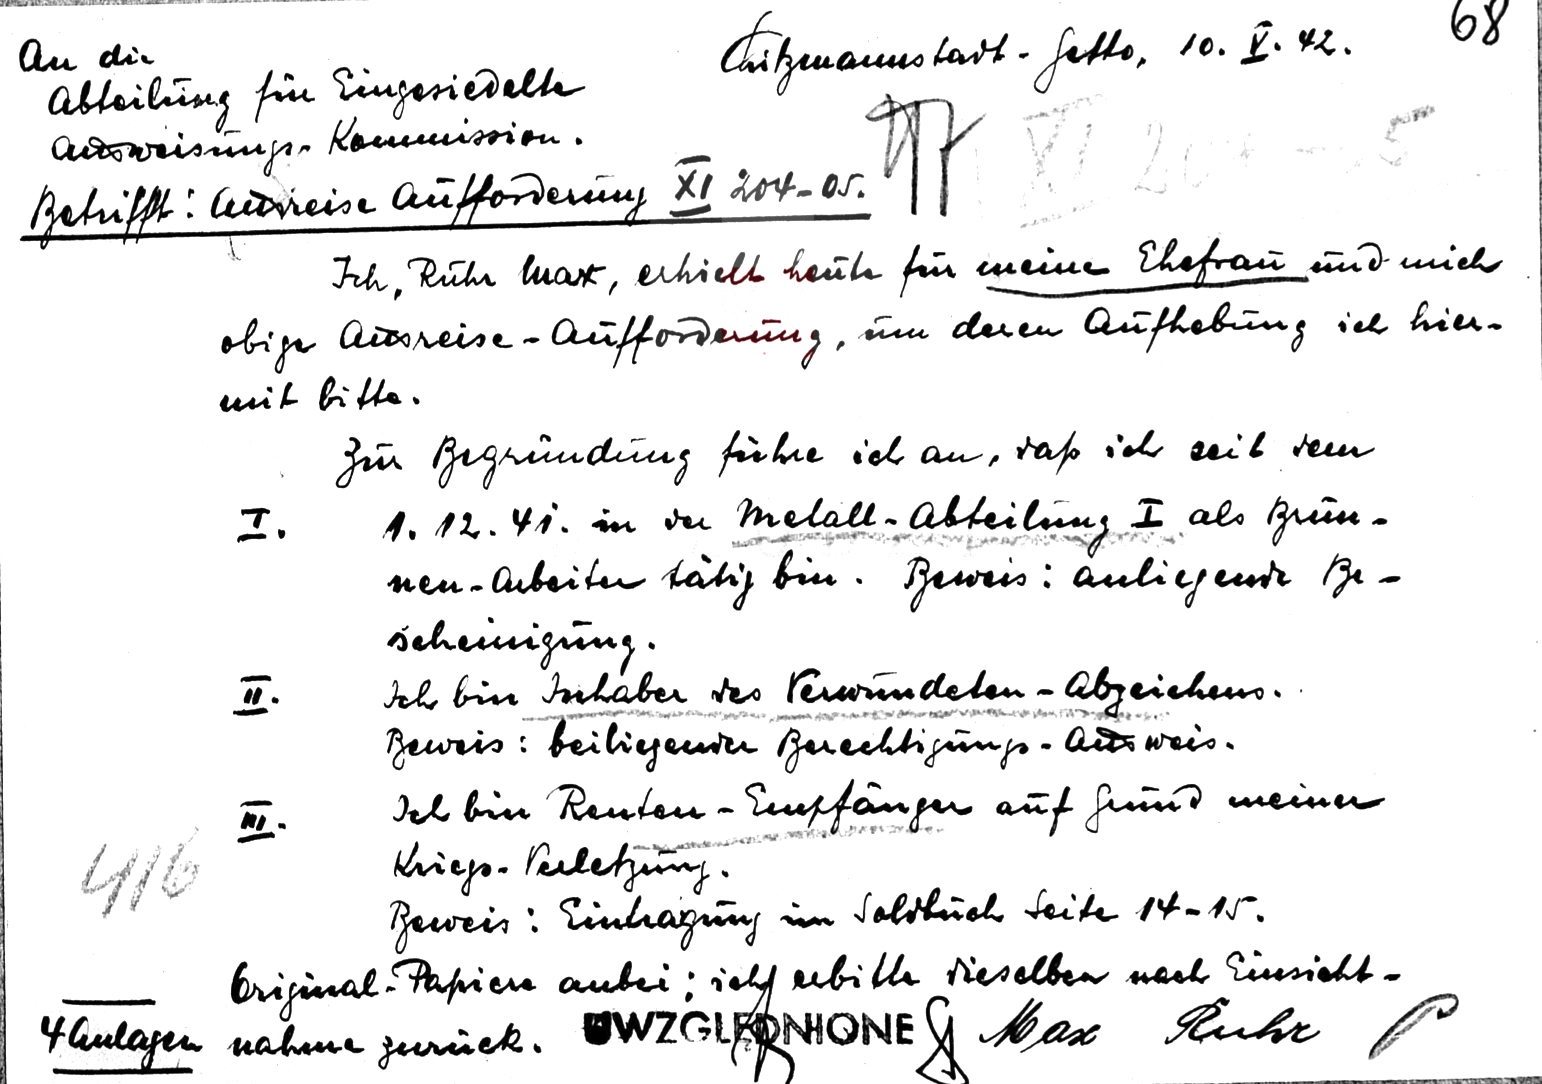 68
Litzmannstadt-Getto, 10. V. 42.
An die
Abteilung für Eingesiedelte
Ausweisungs-Kommission.
Betrifft: Ausreise Aufforderung XI 204-05.
XI 204-05
Ich, Ruhr Max, erhielt heute für meine Ehefrau und mich
obige Ausreise-Aufforderung, um deren Aufhebung ich hier-
mit bitte.
Zur Begründung führe ich an, daß ich seit dem
I. 1. 12. 41. in der Metall-Abteilung I als Brun-
nen-Arbeiter tätig bin. Beweis: anliegende Be-
scheinigung.
II. Ich bin Inhaber des Verwundeten-Abzeichens.
Beweis: beiliegender Berechtigungs-Ausweis.
III. Ich bin Renten-Empfänger auf Grund meiner
Kriegs-Verletzung.
416
Beweis: Eintragung im Soldbuch Seite 14-15.
Original-Papiere anbei; ich erbitte dieselben nach Einsicht-
4 Anlagen nahme zurück. UWZGLĘDNIONE Max Ruhr